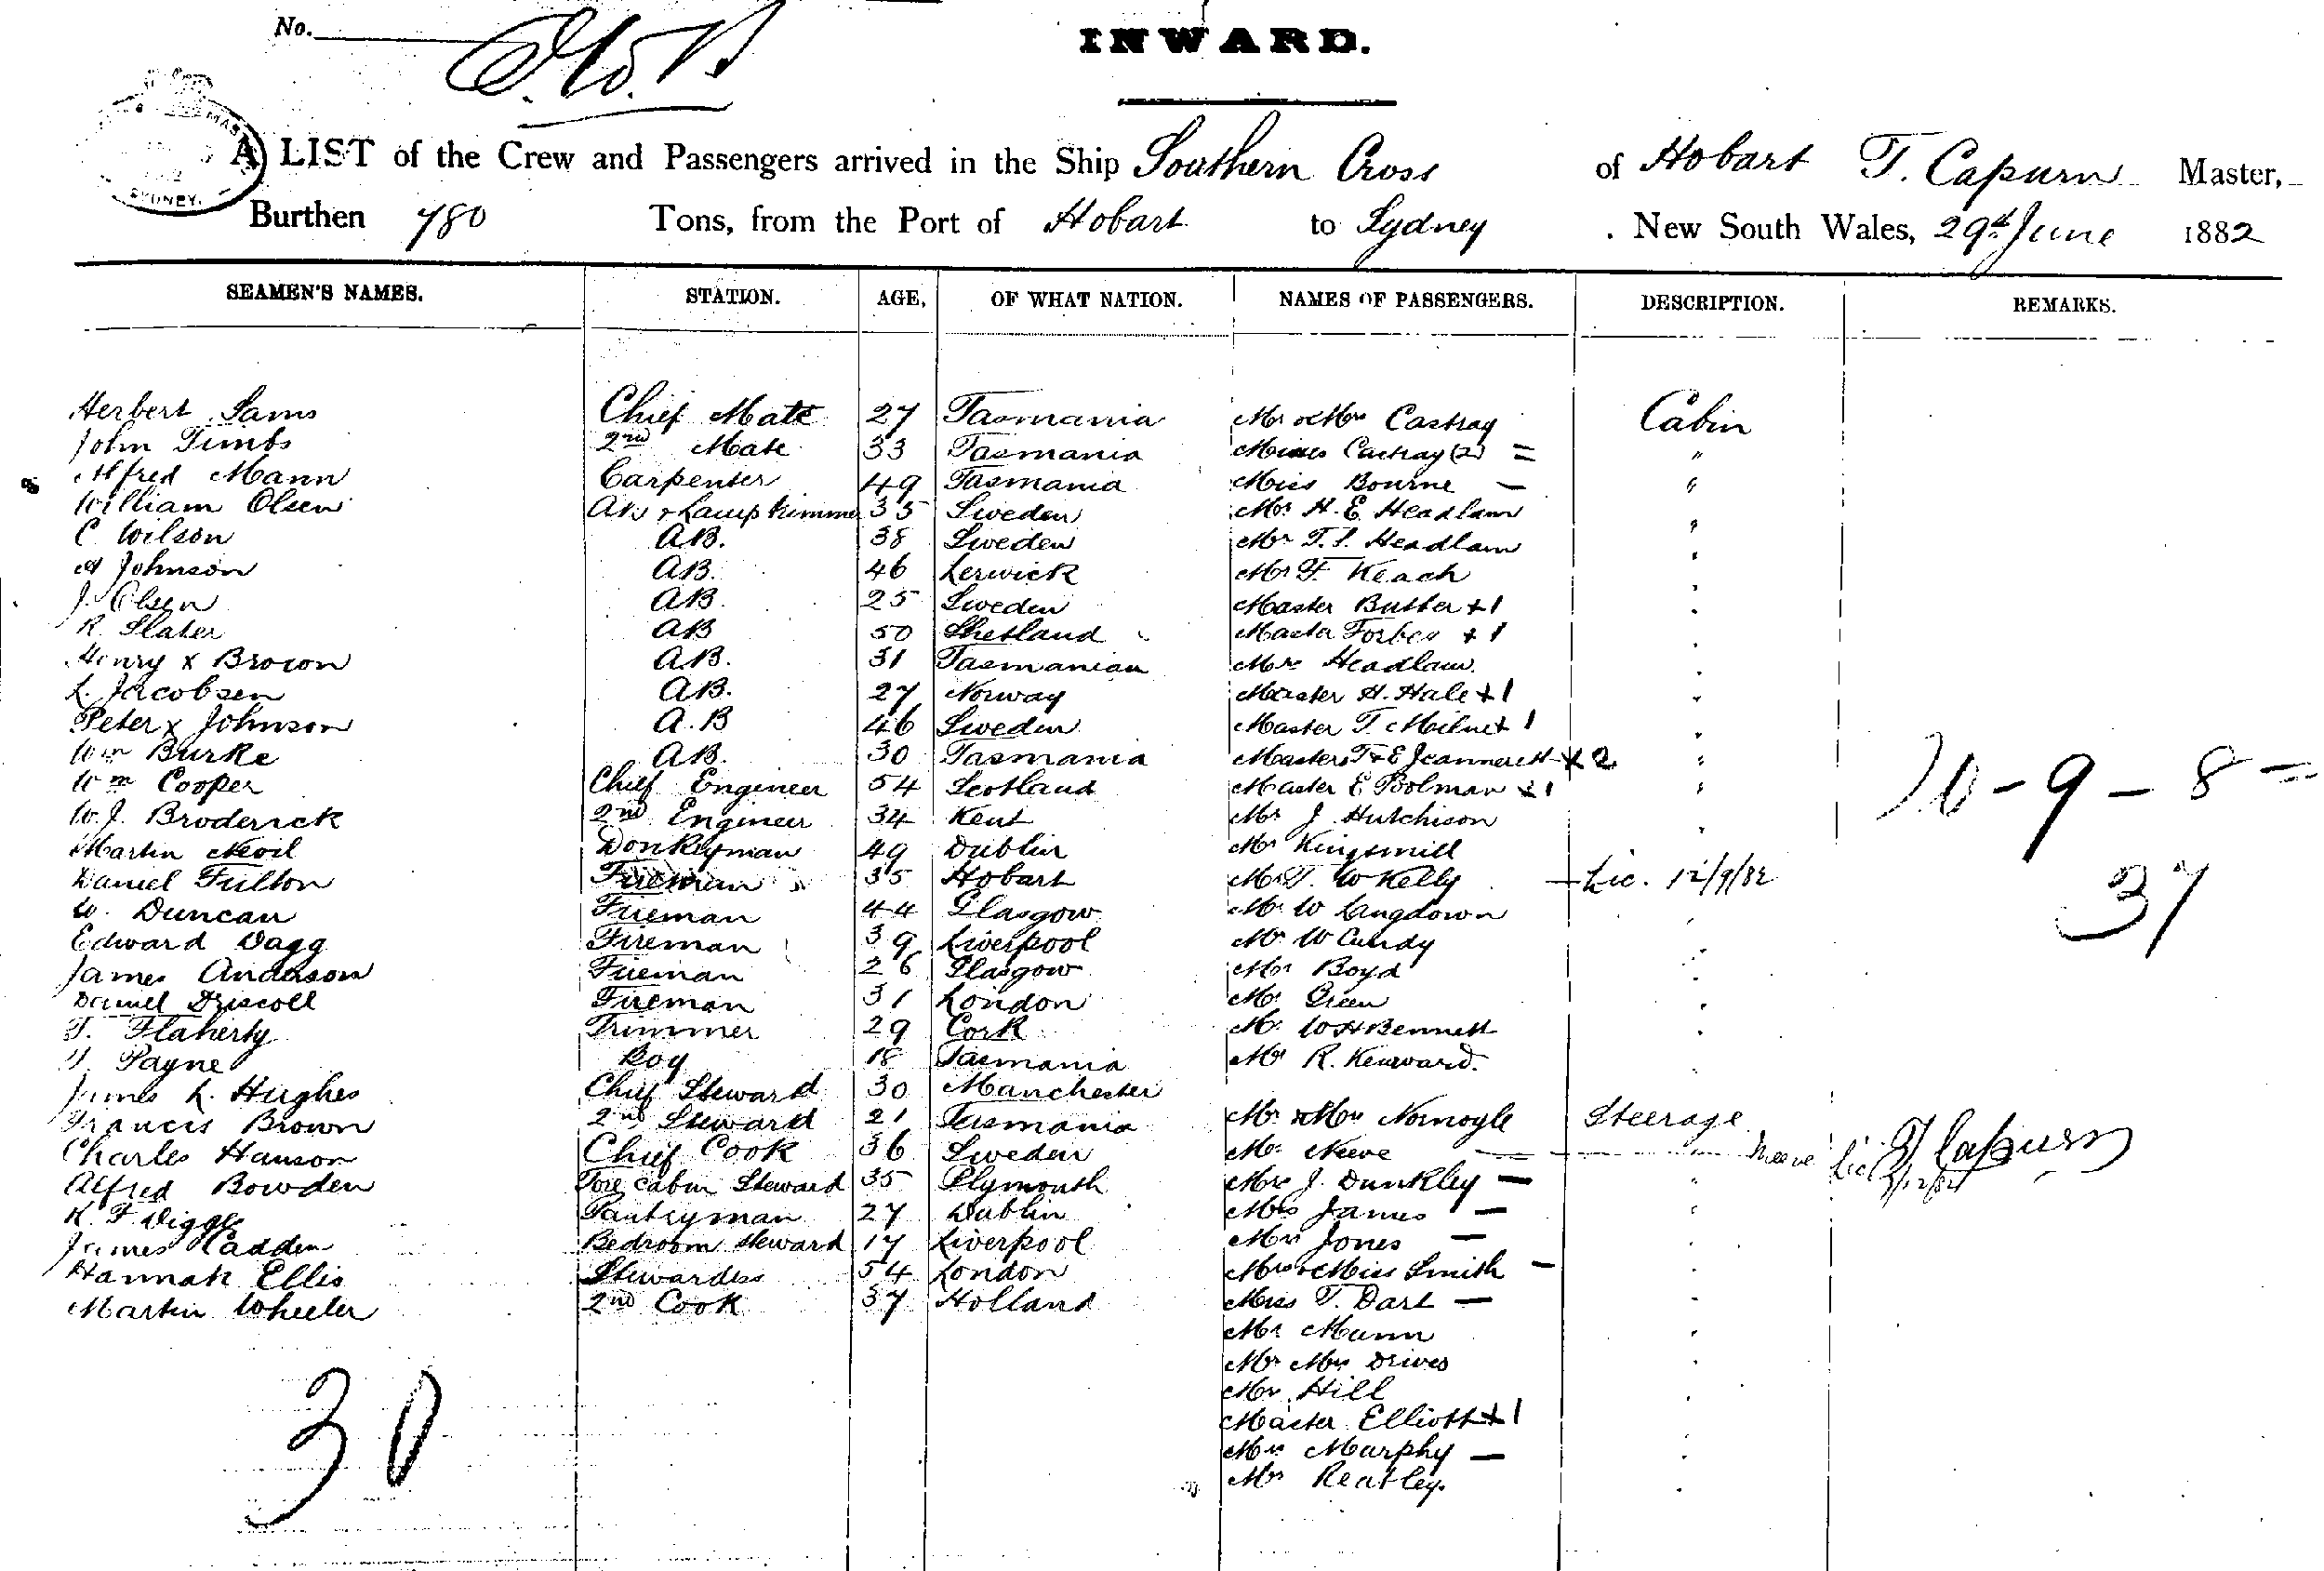 No.
INWARD.
A LIST of the Crew and Passengers arrived in the Ship Southern Cross of Hobart T. Capurn Master,
Burthen 780 Tons, from the Port of Hobart to Sydney . New South Wales, 29th June 1882
SEAMEN'S NAMES. STATION. AGE, OF WHAT NATION. NAMES OF PASSENGERS. DESCRIPTION. REMARKS.
Herbert Sams Chief Mate 27 Tasmania Mr & Mrs Castray Cabin
John Timbs 2nd Mate 33 Tasmania Misses Castray (2) = "
Alfred Mann Carpenter 49 Tasmania Miss Bourne — "
William Olsen AB & Lamp trimmer 35 Sweden Mr H. E. Headlam "
C Wilson AB. 38 Sweden Mr T. S. Headlam "
A Johnson AB. 46 Lerwick Mr F. Keach "
J. Olsen AB. 25 Sweden Master Butler + 1 "
R. Slater AB 50 Shetland Master Forbes + 1 "
Henry x Brown AB. 31 Tasmanian Mrs Headlam "
L. Jacobsen AB. 27 Norway Master H. Hale + 1 "
Peter x Johnson A.B 46 Sweden Master T. Milne + 1 "
Wm Burke AB. 30 Tasmania Masters T & E Jeannerett + 2 "
Wm Cooper Chief Engineer 54 Scotland Master E Bolman + 1 " - 9 - 8 =
W. J. Broderick 2nd Engineer 34 Kent Mr J Hutchison "
Martin Nevil Donkeyman 49 Dublin Mr Kingsmill
Daniel Fulton Fireman 35 Hobart Mr T. W Kelly Lic. 12/9/82 37
W. Duncan Fireman 44 Glasgow Mr W Langdown "
Edward Dagg Fireman 39 Liverpool Mr W Cundy "
James Anderson Fireman 26 Glasgow Mr Boyd "
Daniel Driscoll Fireman 31 London Mr Green "
T. Flaherty Trimmer 29 Cork Mr W H Bennett "
Payne Boy 18 Tasmania Mr R. Kenward. "
James L. Hughes Chief Steward 30 Manchester
Francis Brown 2nd Steward 21 Tasmania Mr & Mrs Nornoyle Steerage
Charles Hanson Chief Cook 36 Sweden Mr Neeve " Neeve Lic T Capurn
Alfred Bowden Fore Cabin Steward 35 Plymouth Mrs J. Dunkley — "
R. F. Diggle Pantryman 27 Dublin Mrs James — "
James Cadden Bedroom Steward 17 Liverpool Mrs Jones — "
Hannah Ellis Stewardess 54 London Mrs & Miss Smith — "
Martin Wheeler 2nd Cook 37 Holland Miss T. Dart — "
Mr Munn "
Mr Mrs Drives "
Mr Hill
30 Master Elliott + 1 "
Mrs Murphy — "
Mr Reatley. "